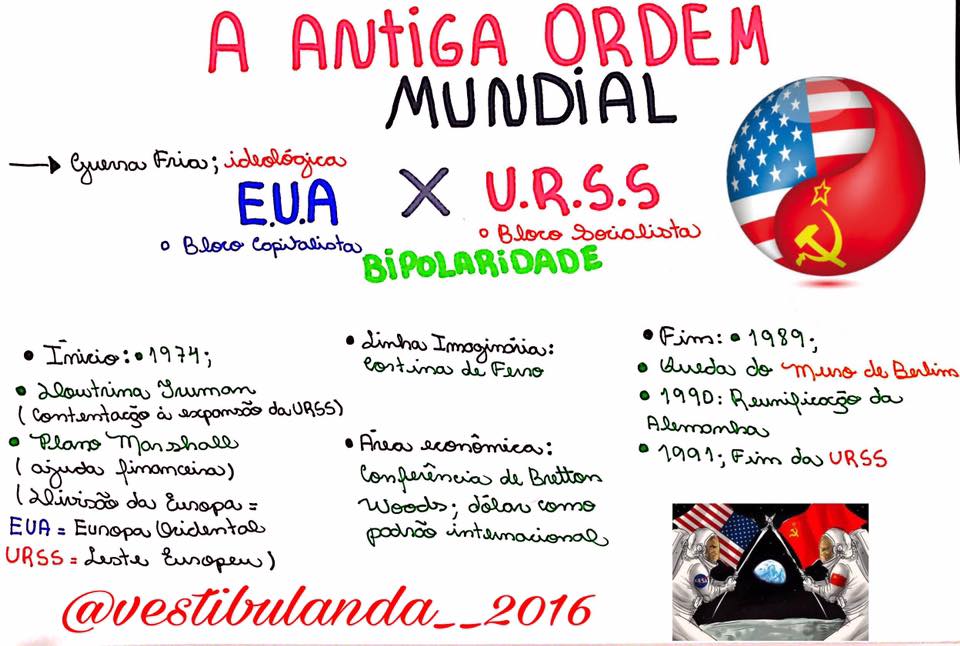 A ANTIGA ORDEM
MUNDIAL
→ Guerra Fria; ideológica
E.U.A X U.R.S.S
• Bloco Capitalista
• Bloco Socialista
BIPOLARIDADE
• Ínicio: • 1974;
• Doutrina Truman
(contentação à expansão da URSS)
• Plano Marshall
(ajuda financeira)
(Divisão da Europa =
EUA = Europa Ocidental
URSS = Leste Europeu)
• Linha Imaginária:
Cortina de Ferro
• Área econômica:
Conferência de Bretton
Woods; dólar como
padrão internacional
• Fim: • 1989;
• Queda do Muro de Berlim
• 1990: Reunificação da
Alemanha
• 1991; Fim da URSS
NASA
@vestibulanda__2016